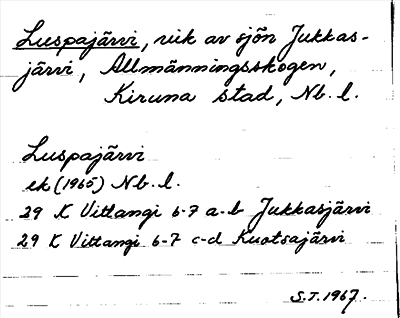 Luspajärvi, vik av sjön Jukkas-
järvi, Allmänningsskogen,
Kiruna stad, Nb. l.
Luspajärvi
ek (1965) Nb. l.
29 K Vittangi 6-7 a-b Jukkasjärvi
29 K Vittangi 6-7 c-d Kuotsajärvi
S.T. 1967.